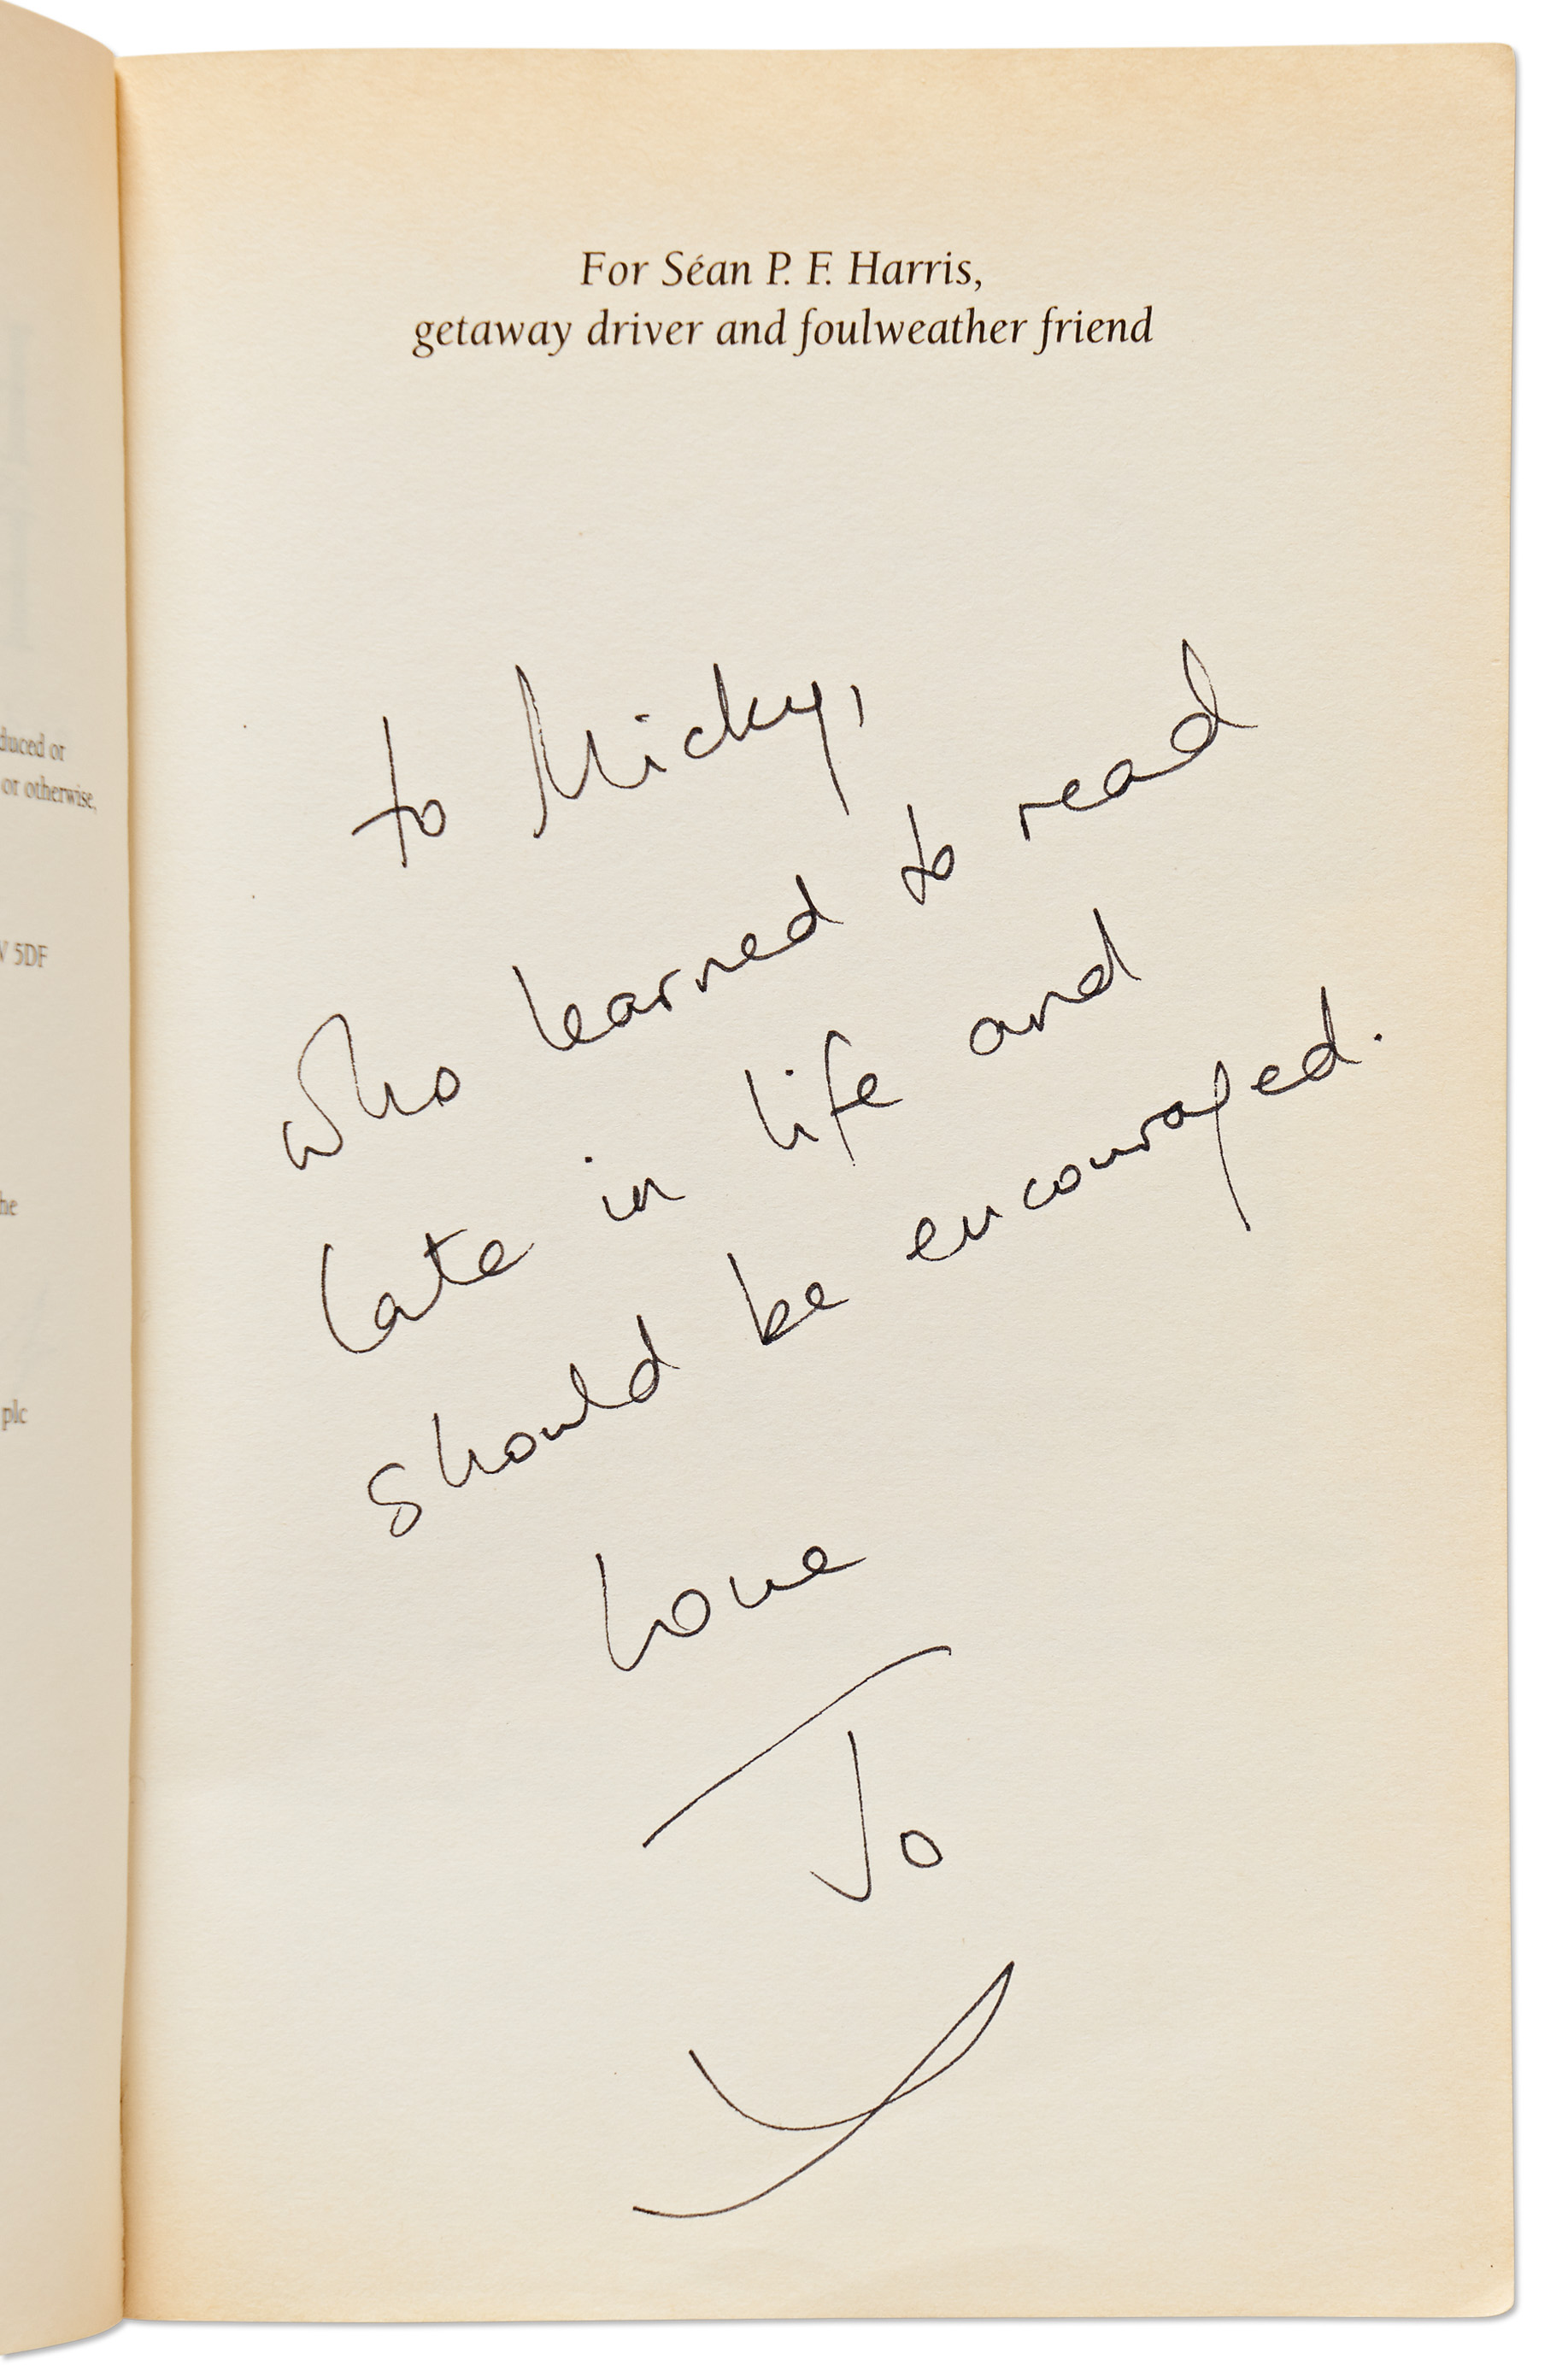 duced or
or otherwise,
5DF
he
plc
For Séan P. F. Harris,
getaway driver and foulweather friend
to Micky,
who learned to read
late in life and
should be encouraged.
Love
Jo
x